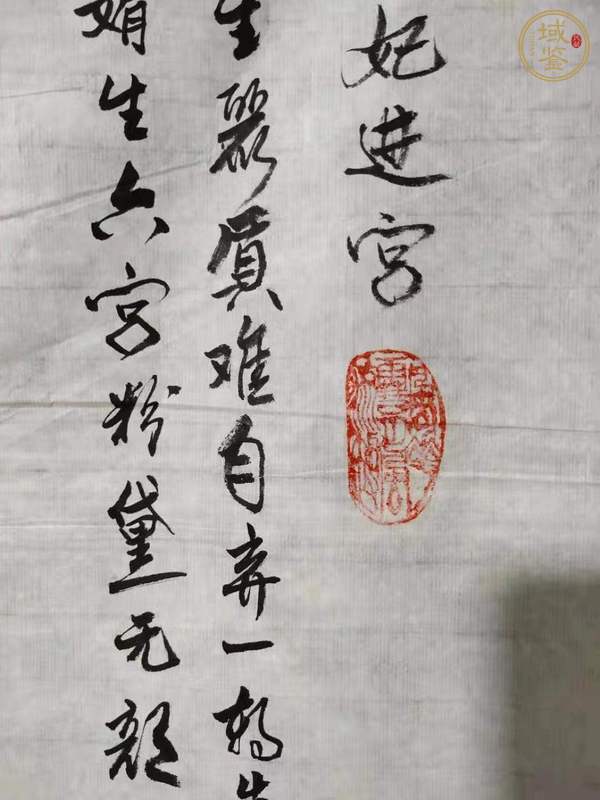 妃进宫
生麗質难自弃一朝
媚生六宫粉黛无颜
域鑒